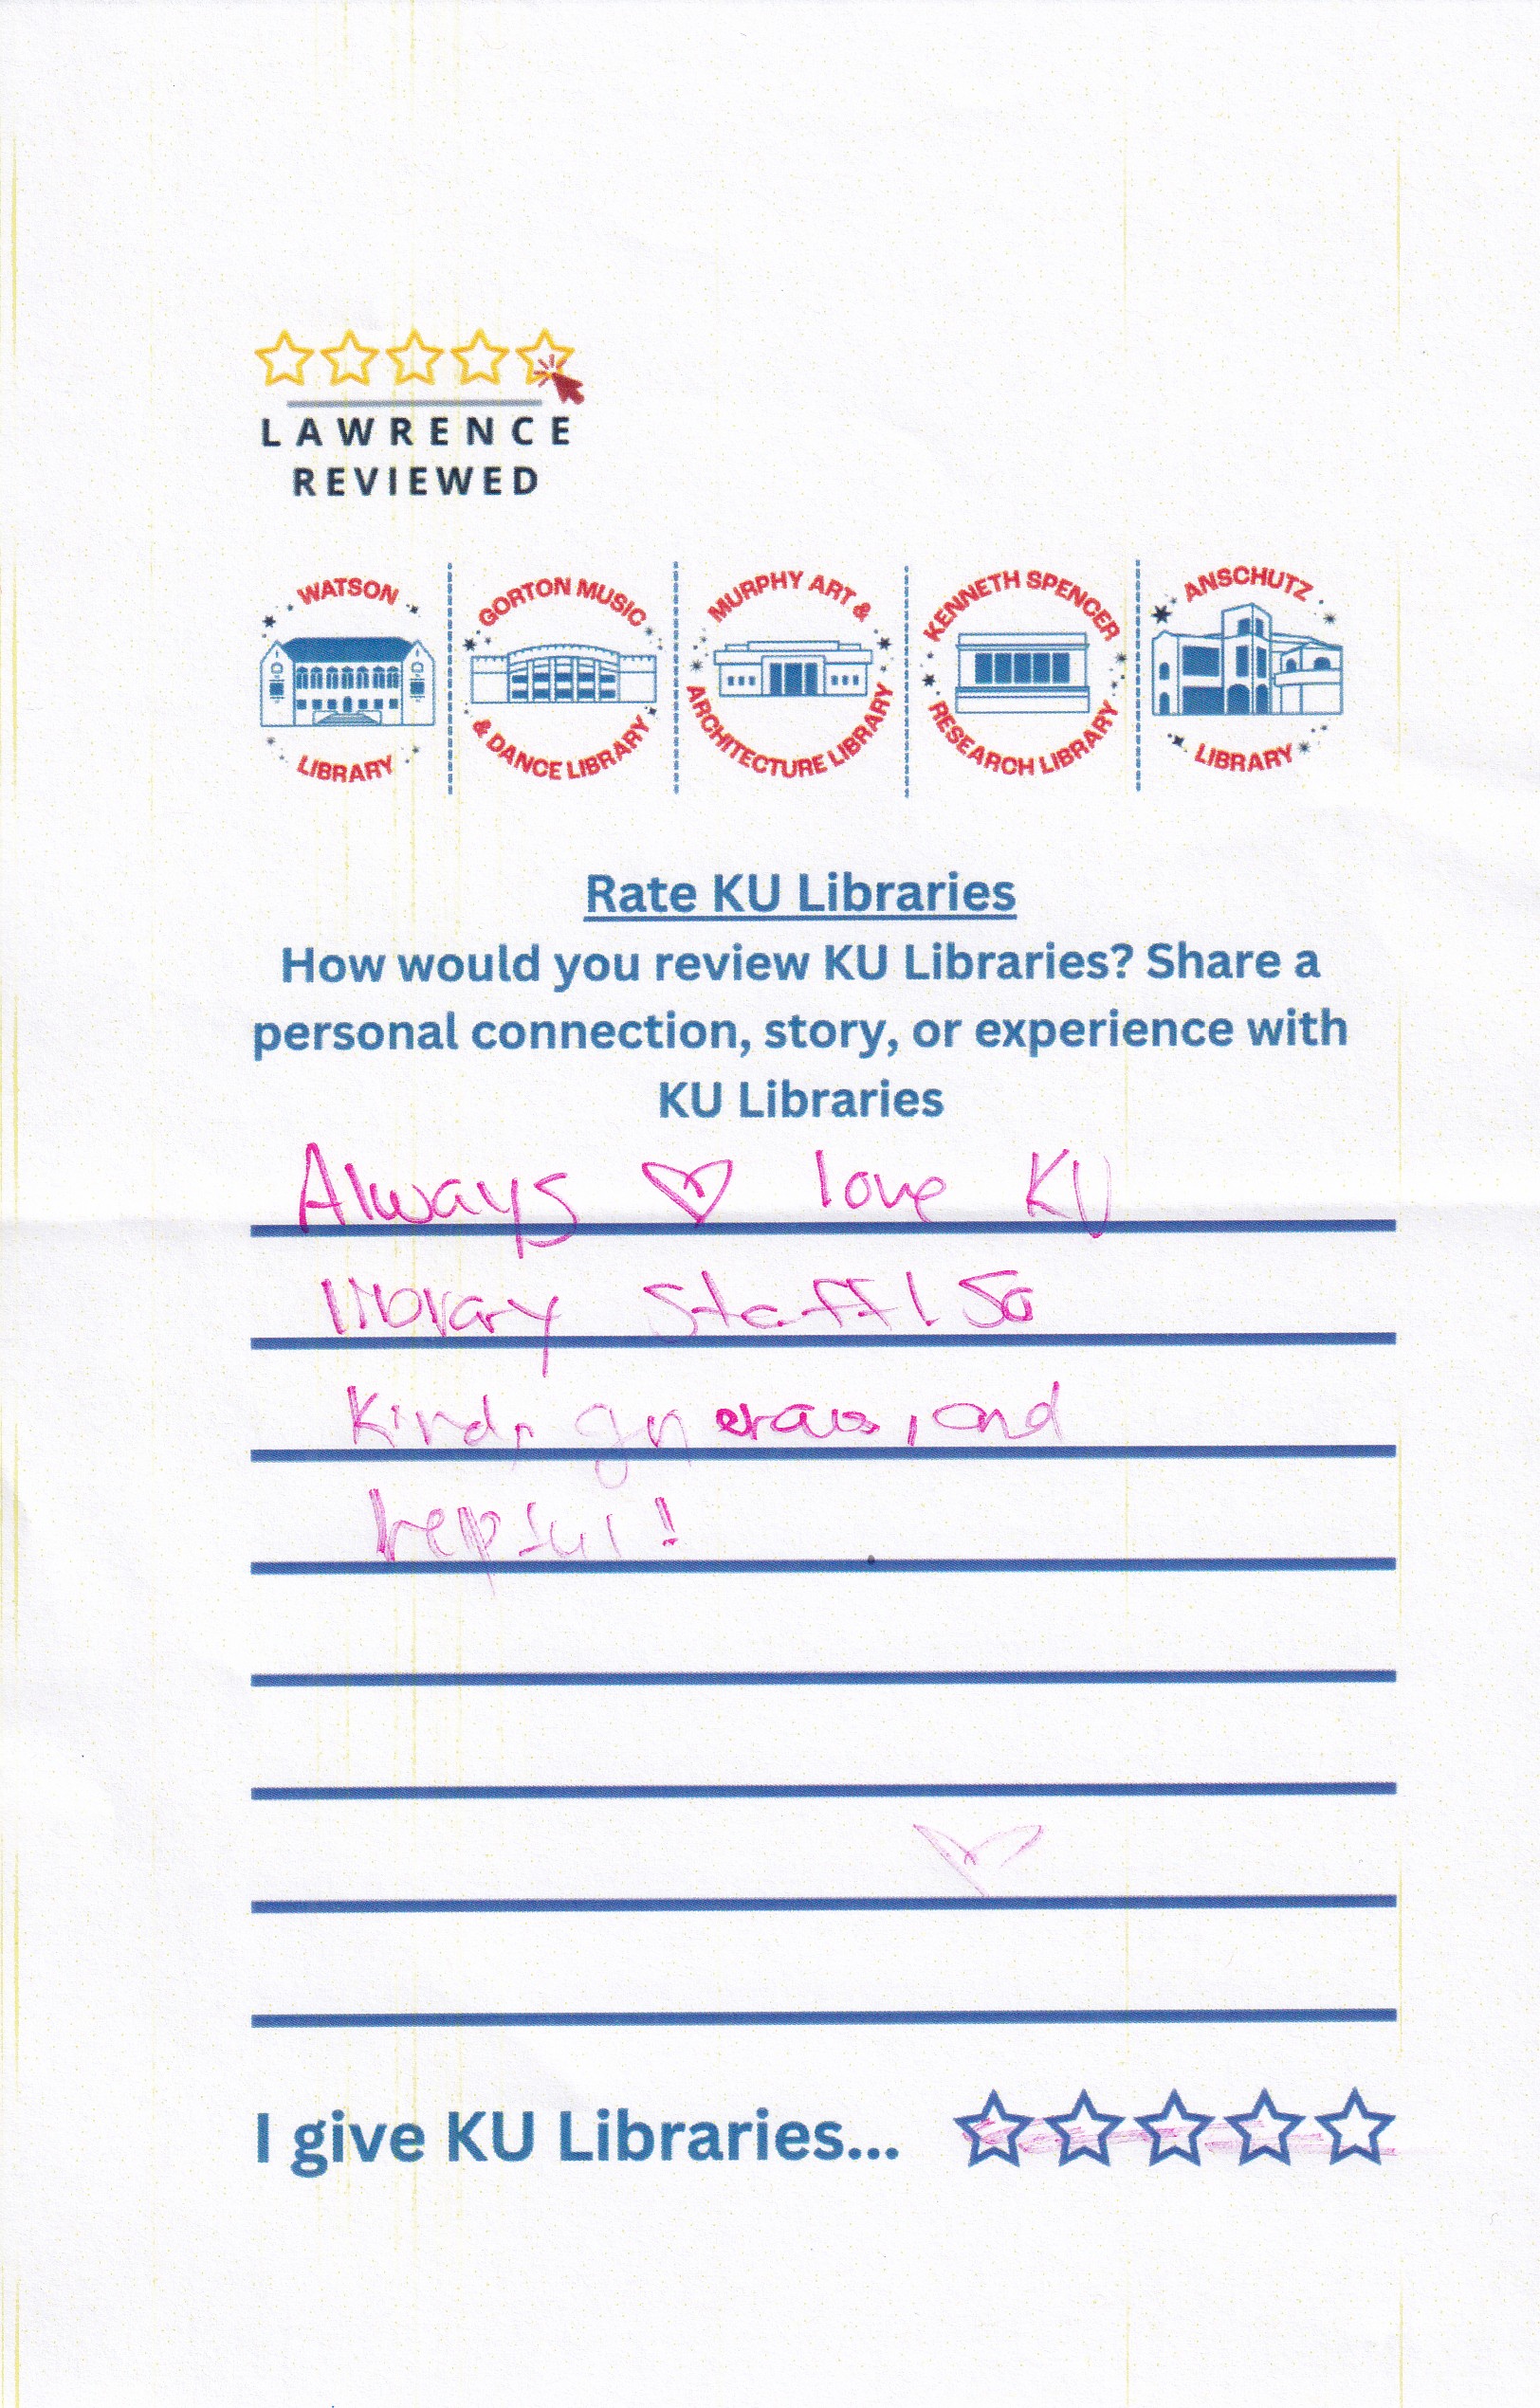 LAWRENCE
REVIEWED
WATSON
LIBRARY
GORTON MUSIC
& DANCE LIBRARY
MURPHY ART &
ARCHITECTURE LIBRARY
KENNETH SPENCER
RESEARCH LIBRARY
ANSCHUTZ
LIBRARY
Rate KU Libraries
How would you review KU Libraries? Share a
personal connection, story, or experience with
KU Libraries
Always ♡ love KU
library staff! So
kind, generous, and
helpful!
I give KU Libraries...